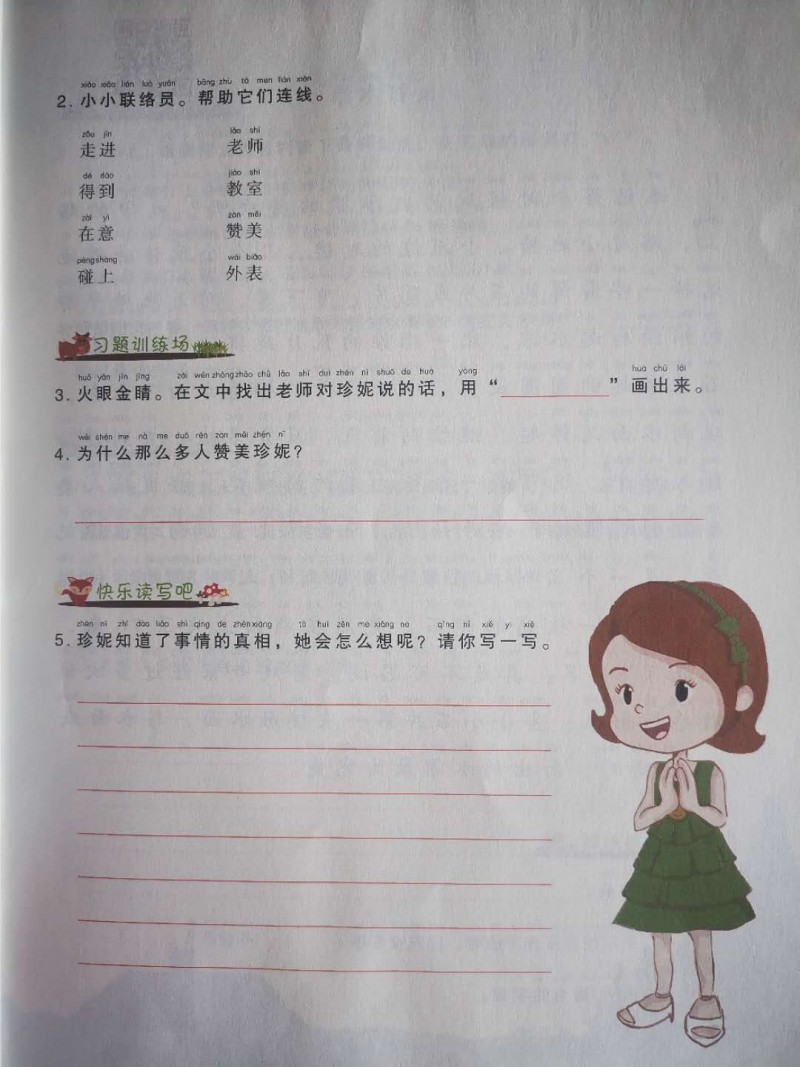 xiǎo xiǎo lián luò yuán bāng zhù tā men lián xiàn
2. 小小联络员。帮助它们连线。
zǒu jìn lǎo shī
走进 老师
dé dào jiào shì
得到 教室
zài yì zàn měi
在意 赞美
pèng shàng wài biǎo
碰上 外表
习题训练场
huǒ yǎn jīn jīng zài wén zhōng zhǎo chū lǎo shī duì zhēn nī shuō de huà yòng huà chū lái
3. 火眼金睛。在文中找出老师对珍妮说的话，用“________”画出来。
wèi shén me nà me duō rén zàn měi zhēn nī
4. 为什么那么多人赞美珍妮？
快乐读写吧
zhēn nī zhī dào liǎo shì qíng de zhēn xiàng tā huì zěn me xiǎng ne qǐng nǐ xiě yi xiě
5. 珍妮知道了事情的真相，她会怎么想呢？请你写一写。